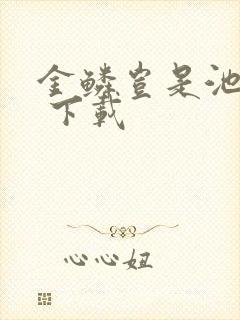 金鳞岂是池
下载
心心妞